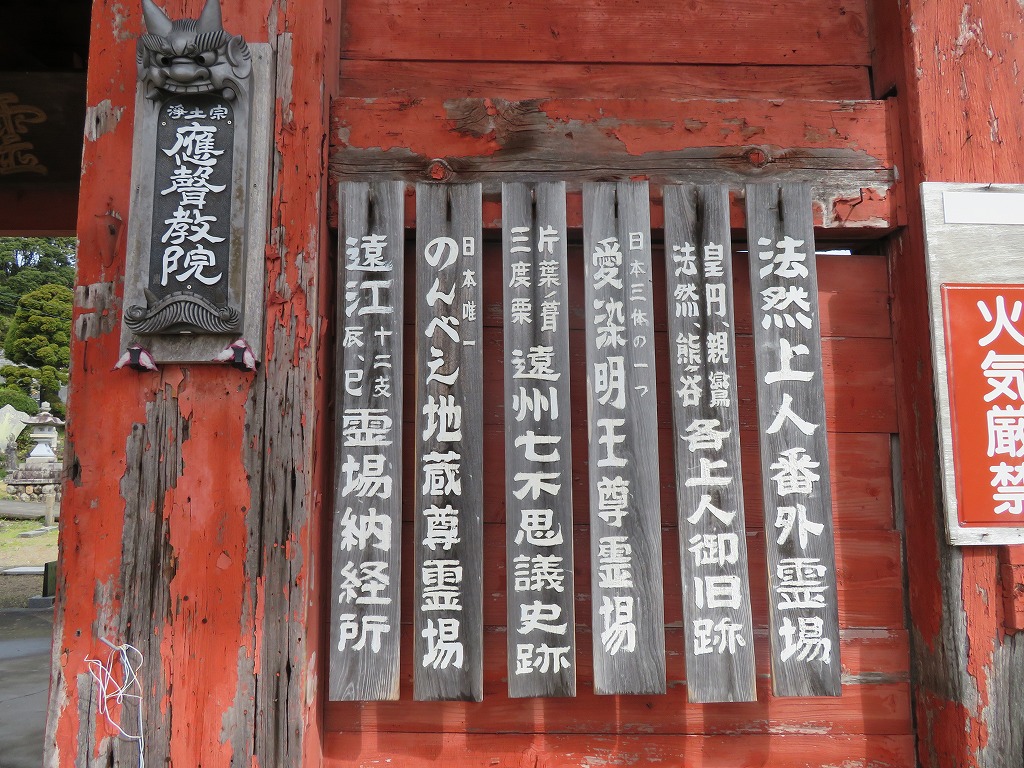 浄土宗
應聲教院
法然上人番外霊場
皇円、親鸞
法然、熊谷
各上人御旧跡
日本三体の一つ
愛染明王尊霊場
片葉葺
三度栗
遠州七不思議史跡
日本唯一
のんべえ地蔵尊霊場
遠江
十二支
辰、巳
霊場納経所
火気厳禁
靈